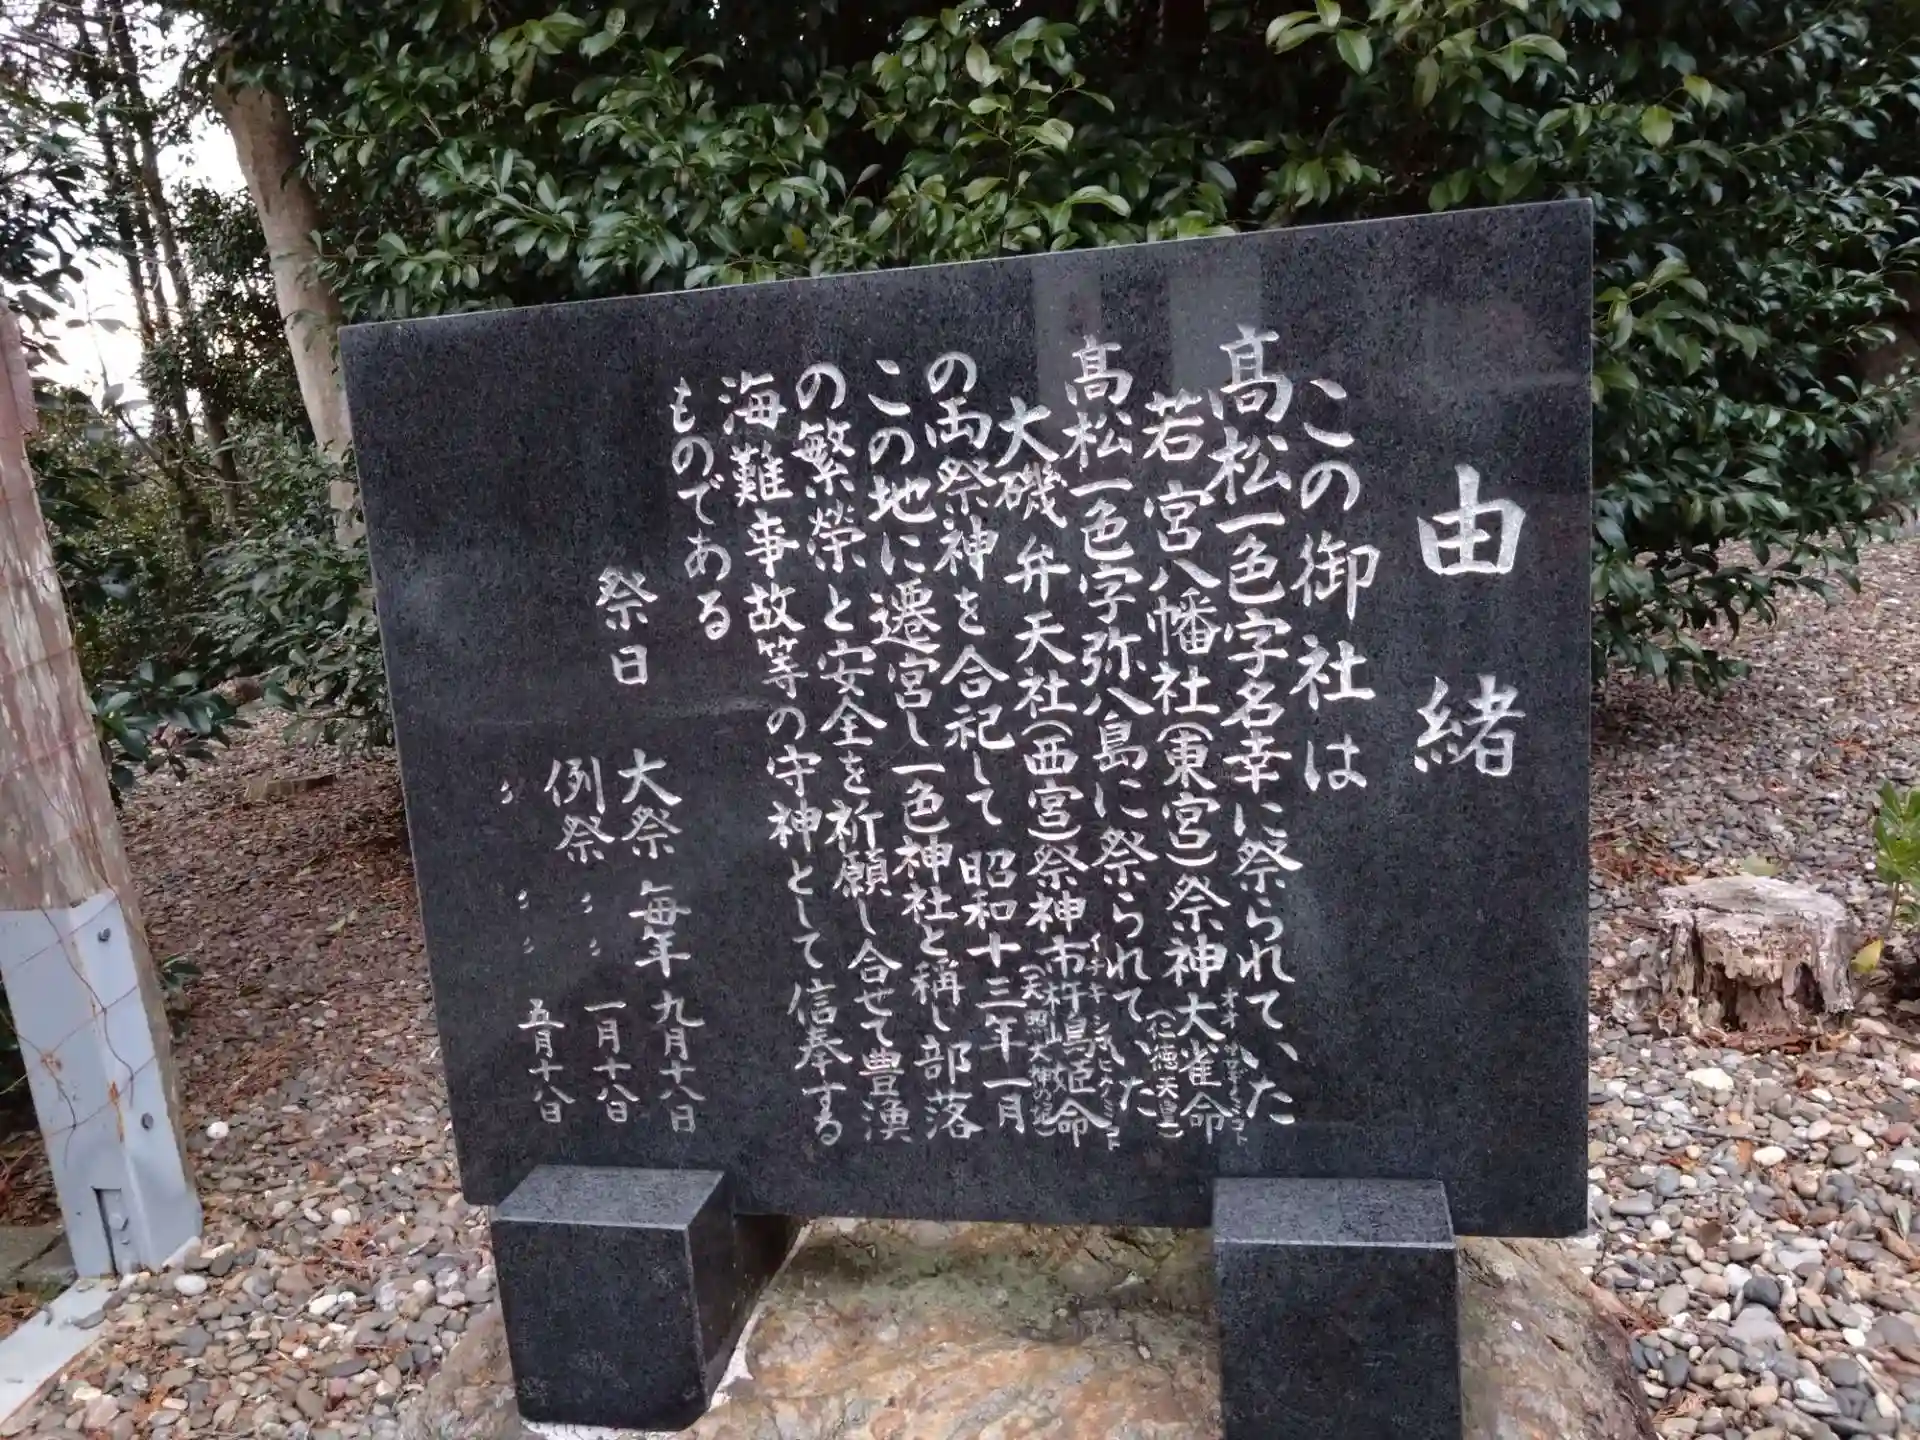 由緒
この御社は
髙松一色字名幸に祭られていた
若宮八幡社(東宮)祭神大雀命
オオサザキノミコト
(仁徳天皇)
髙松一色字弥八島に祭られていた
大磯弁天社(西宮)祭神市杵嶋姫命
イチキシマヒメノミコト
(天照大神の娘)
の両祭神を合祀して 昭和十三年一月
この地に遷宮し一色神社と称し部落
の繁榮と安全を祈願し合せて豊漁
海難事故等の守神として信奉する
ものである
祭日 大祭 毎年 九月十八日
例祭 〃 〃 一月十八日
〃 〃 〃 五月十八日